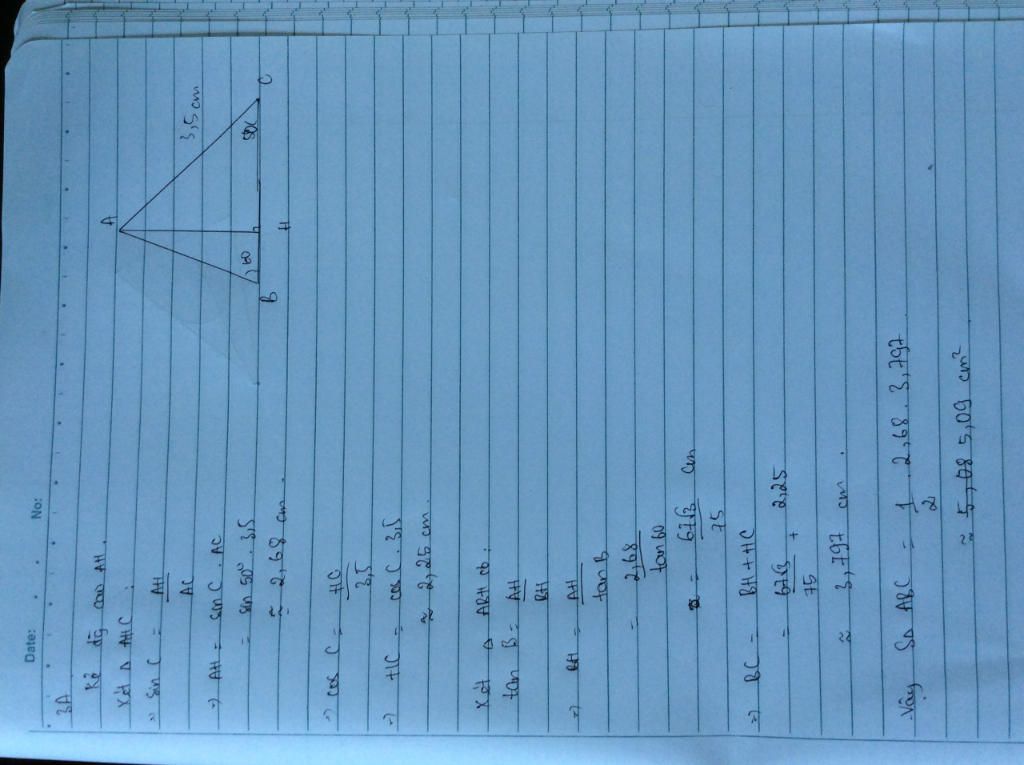 Date:
No:
3A
Kẻ đg̃ cao AH.
A
3,5 cm
60
50
B
H
C
Xét Δ AHC :
=> sin C = AH / AC
=> AH = sin C . AC
= sin 50° . 3,5
≈ 2,68 cm.
=> cos C = HC / 3,5
=> HC = cos C . 3,5
≈ 2,25 cm.
Xét Δ ABH có:
tan B = AH / BH
=> BH = AH / tan B
= 2,68 / tan 60
= 67√3 / 75 cm
=> BC = BH + HC
= 67√3 / 75 + 2,25
≈ 3,797 cm.
Vậy SΔ ABC = 1 / 2 . 2,68 . 3,797
≈ 5,09 cm²